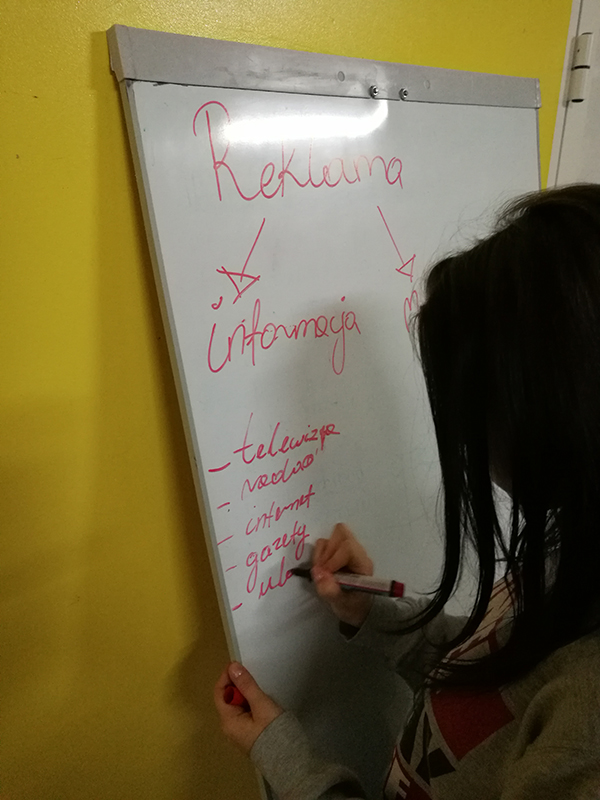 Reklama
informacja
- telewizja
- radio
- internet
- gazety
- ulo